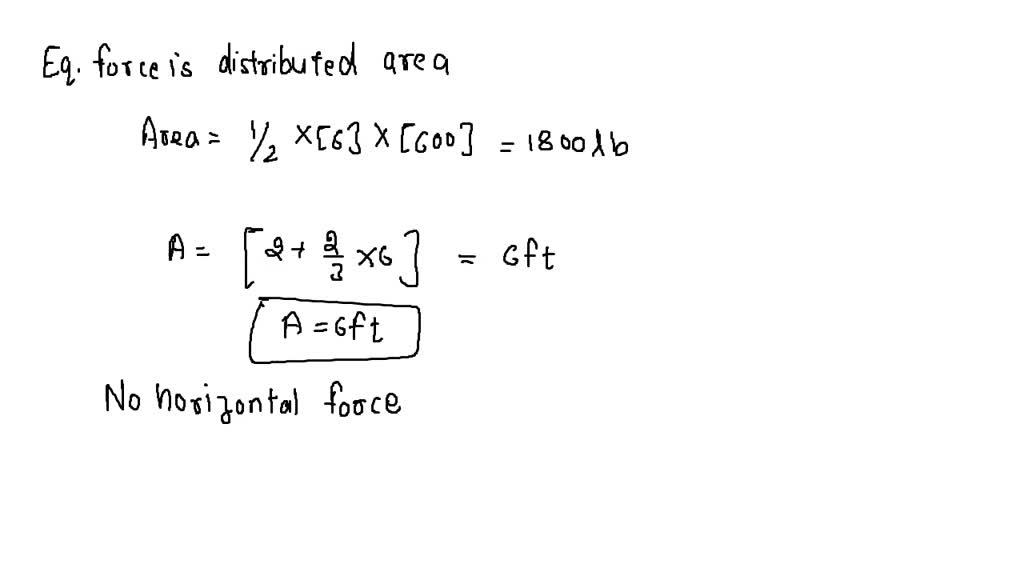 Eq. force is distributed area
Area = 1/2 × [6] × [600] = 1800 lb
A = [2 + 2/3 × 6] = 6ft
A = 6ft
No horizontal force